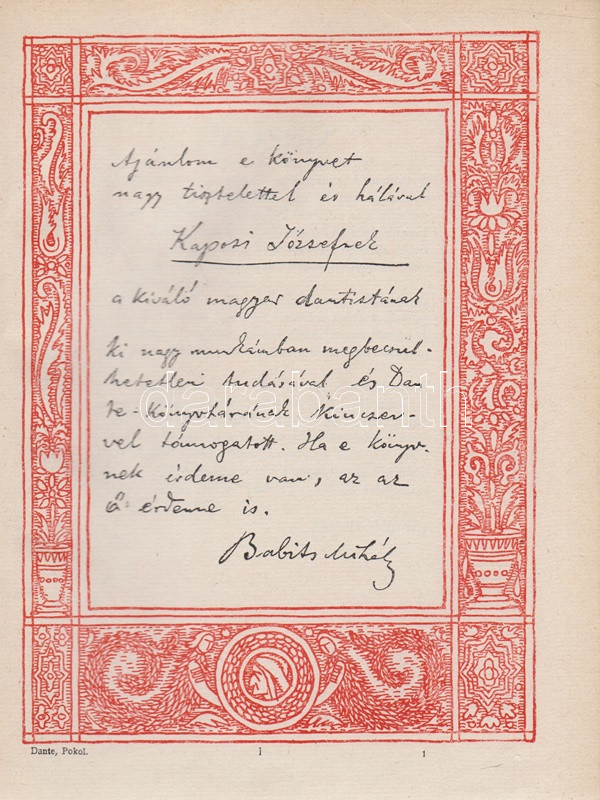 Ajánlom e könyvet
nagy tisztelettel és hálával
Kaposi Józsefnek
a kiváló magyar dantistának
ki nagy munkámban megbecsül-
hetetlen tudásával és Dan
te-könyvtárának kincsei-
vel támogatott. Ha e könyv-
nek érdeme van, az az
ő érdeme is.
Babits Mihály
darabanth
Dante, Pokol.
1
1